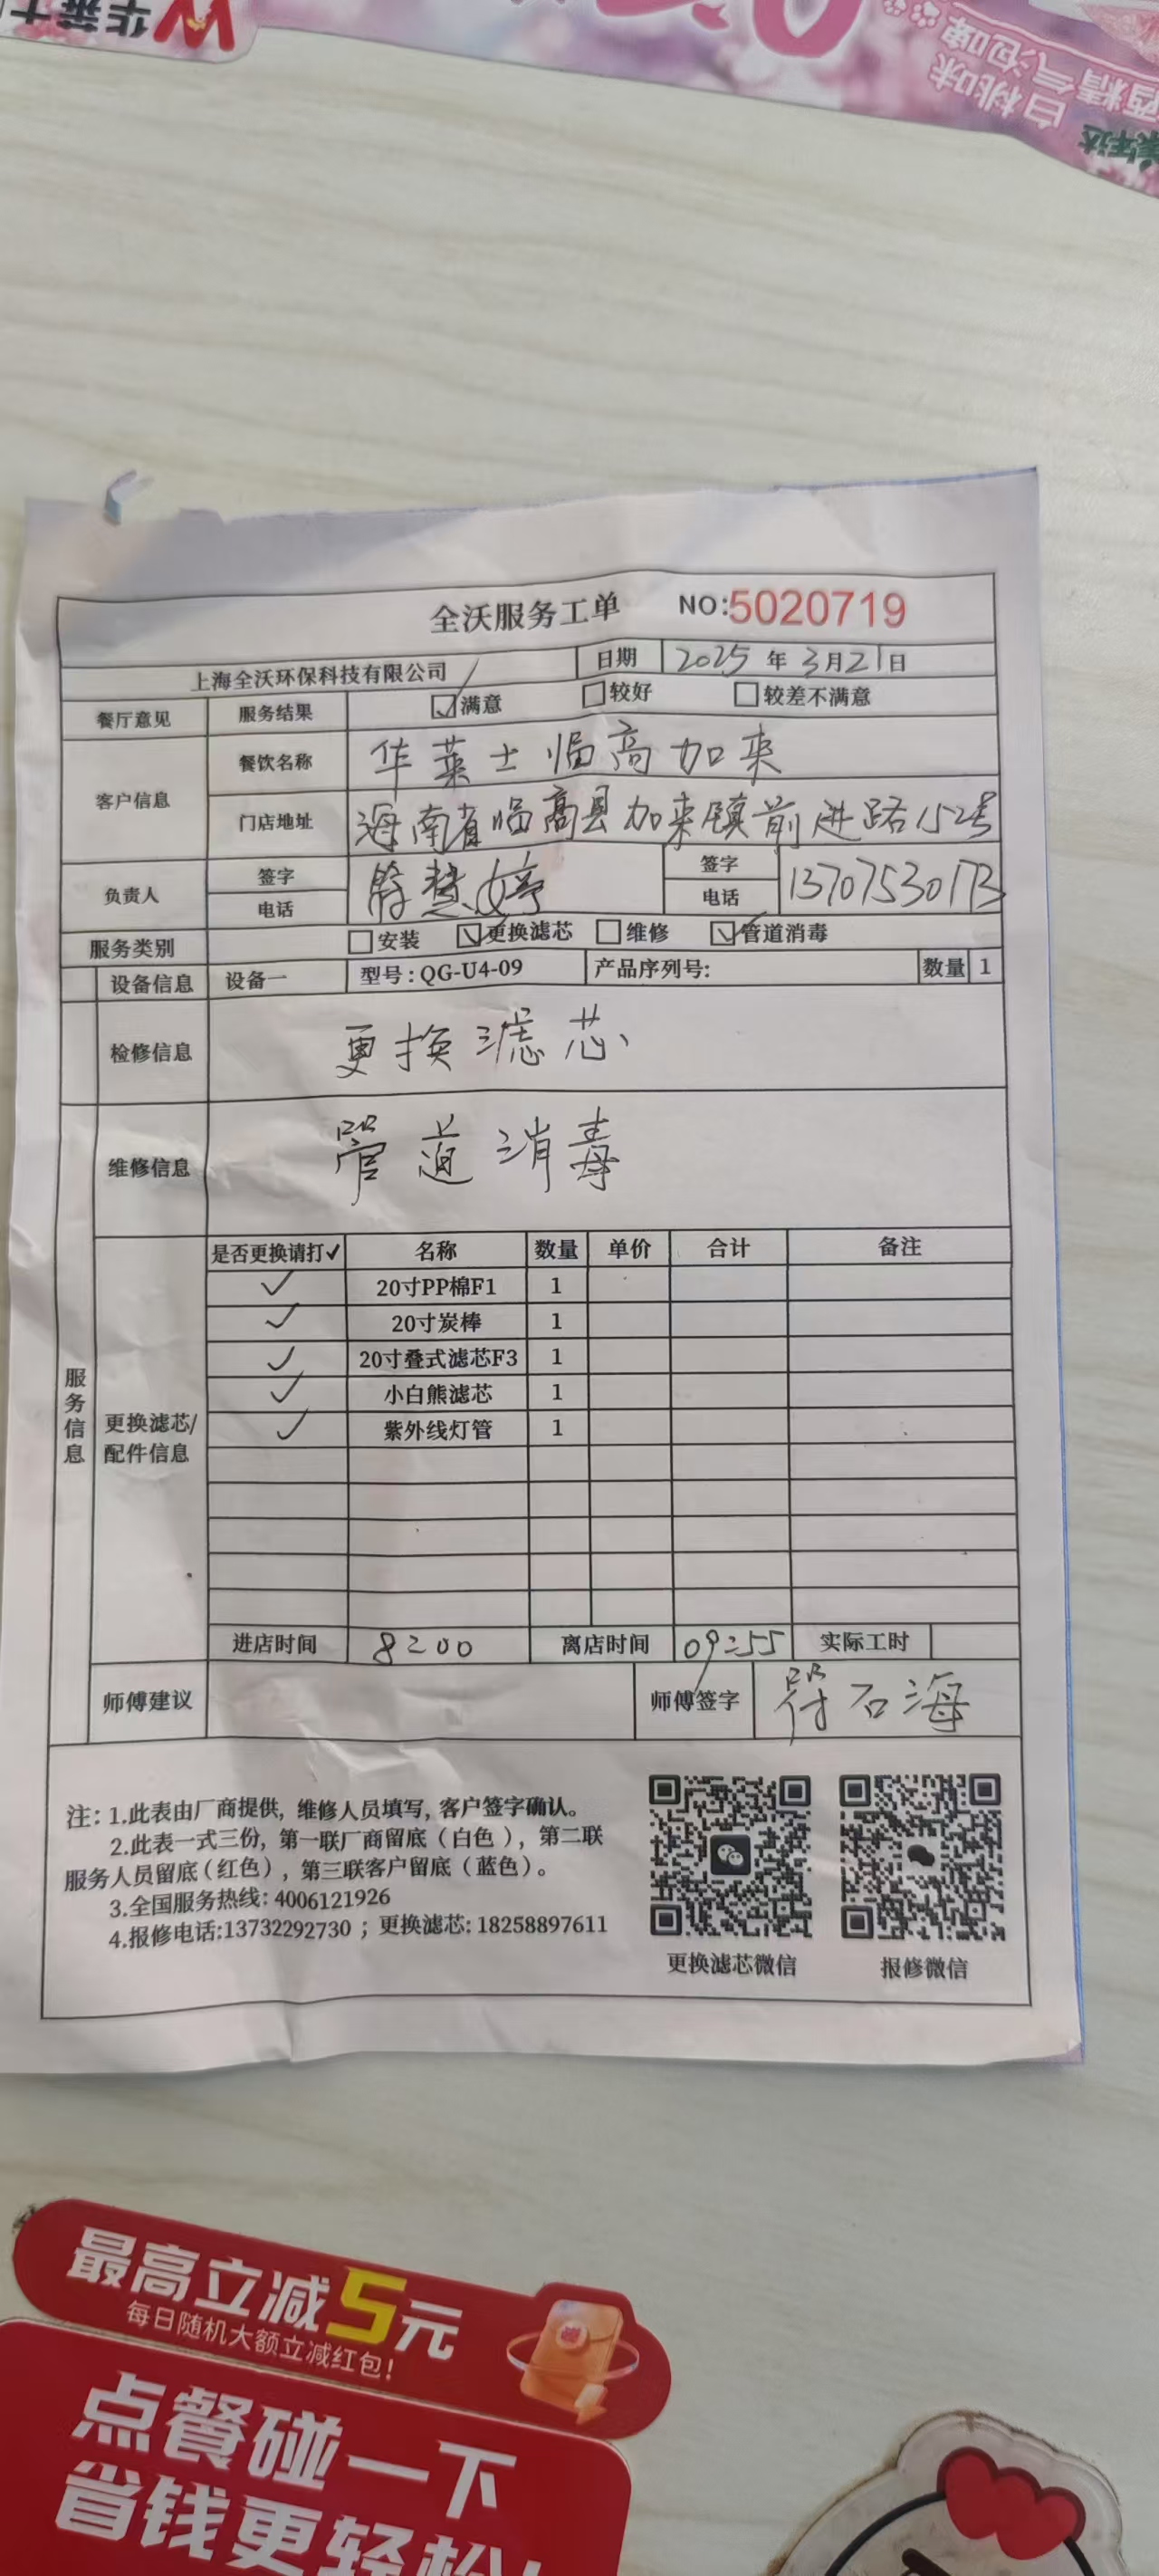 华莱士
白桃味
酒精气泡啤
全沃服务工单 NO:5020719
上海全沃环保科技有限公司 日期 2025年3月21日
餐厅意见 服务结果 ☑满意 □较好 □较差不满意
客户信息 餐饮名称 华莱士临高加来
门店地址 海南省临高县加来镇前进路152号
负责人 签字 慧婷 签字
电话 电话 13707530173
服务类别 □安装 ☑更换滤芯 □维修 ☑管道消毒
设备信息 设备一 型号:QG-U4-09 产品序列号: 数量 1
检修信息 更换滤芯
维修信息 管道消毒
服务信息
更换滤芯/配件信息
是否更换请打✓ 名称 数量 单价 合计 备注
✓ 20寸PP棉F1 1
✓ 20寸炭棒 1
✓ 20寸叠式滤芯F3 1
✓ 小白熊滤芯 1
✓ 紫外线灯管 1
进店时间 8:00 离店时间 09:55 实际工时
师傅建议 师傅签字 符石海
注: 1.此表由厂商提供, 维修人员填写, 客户签字确认。
2.此表一式三份, 第一联厂商留底(白色), 第二联
服务人员留底(红色), 第三联客户留底(蓝色)。
3.全国服务热线: 4006121926
4.报修电话:13732292730 ; 更换滤芯: 18258897611
更换滤芯微信 报修微信
最高立减5元
每日随机大额立减红包!
点餐碰一下
省钱更轻松!